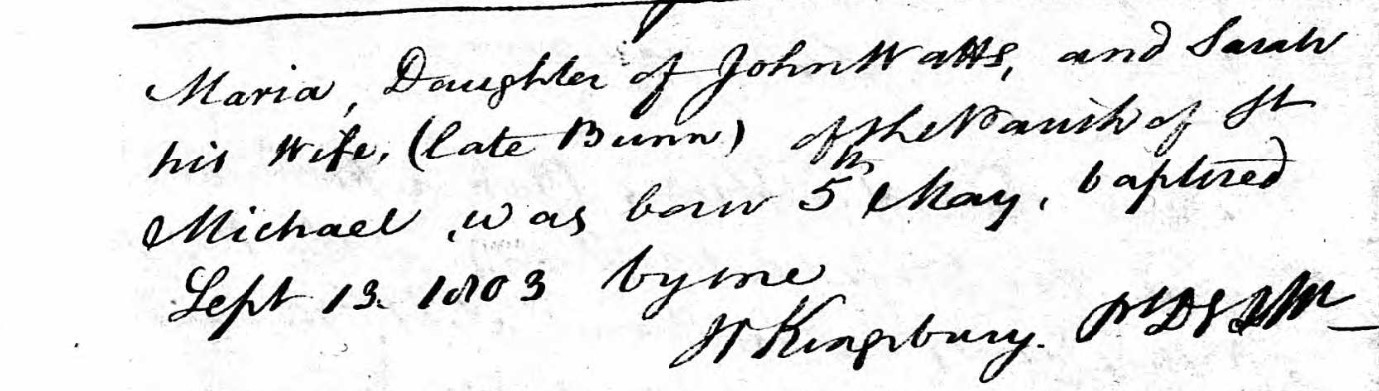 Maria, Daughter of John Watts, and Sarah
his Wife, (late Bunn) of the Parish of St
Michael, was born 5th May, baptized
Sept 13. 1803 by me
Kingsbury.